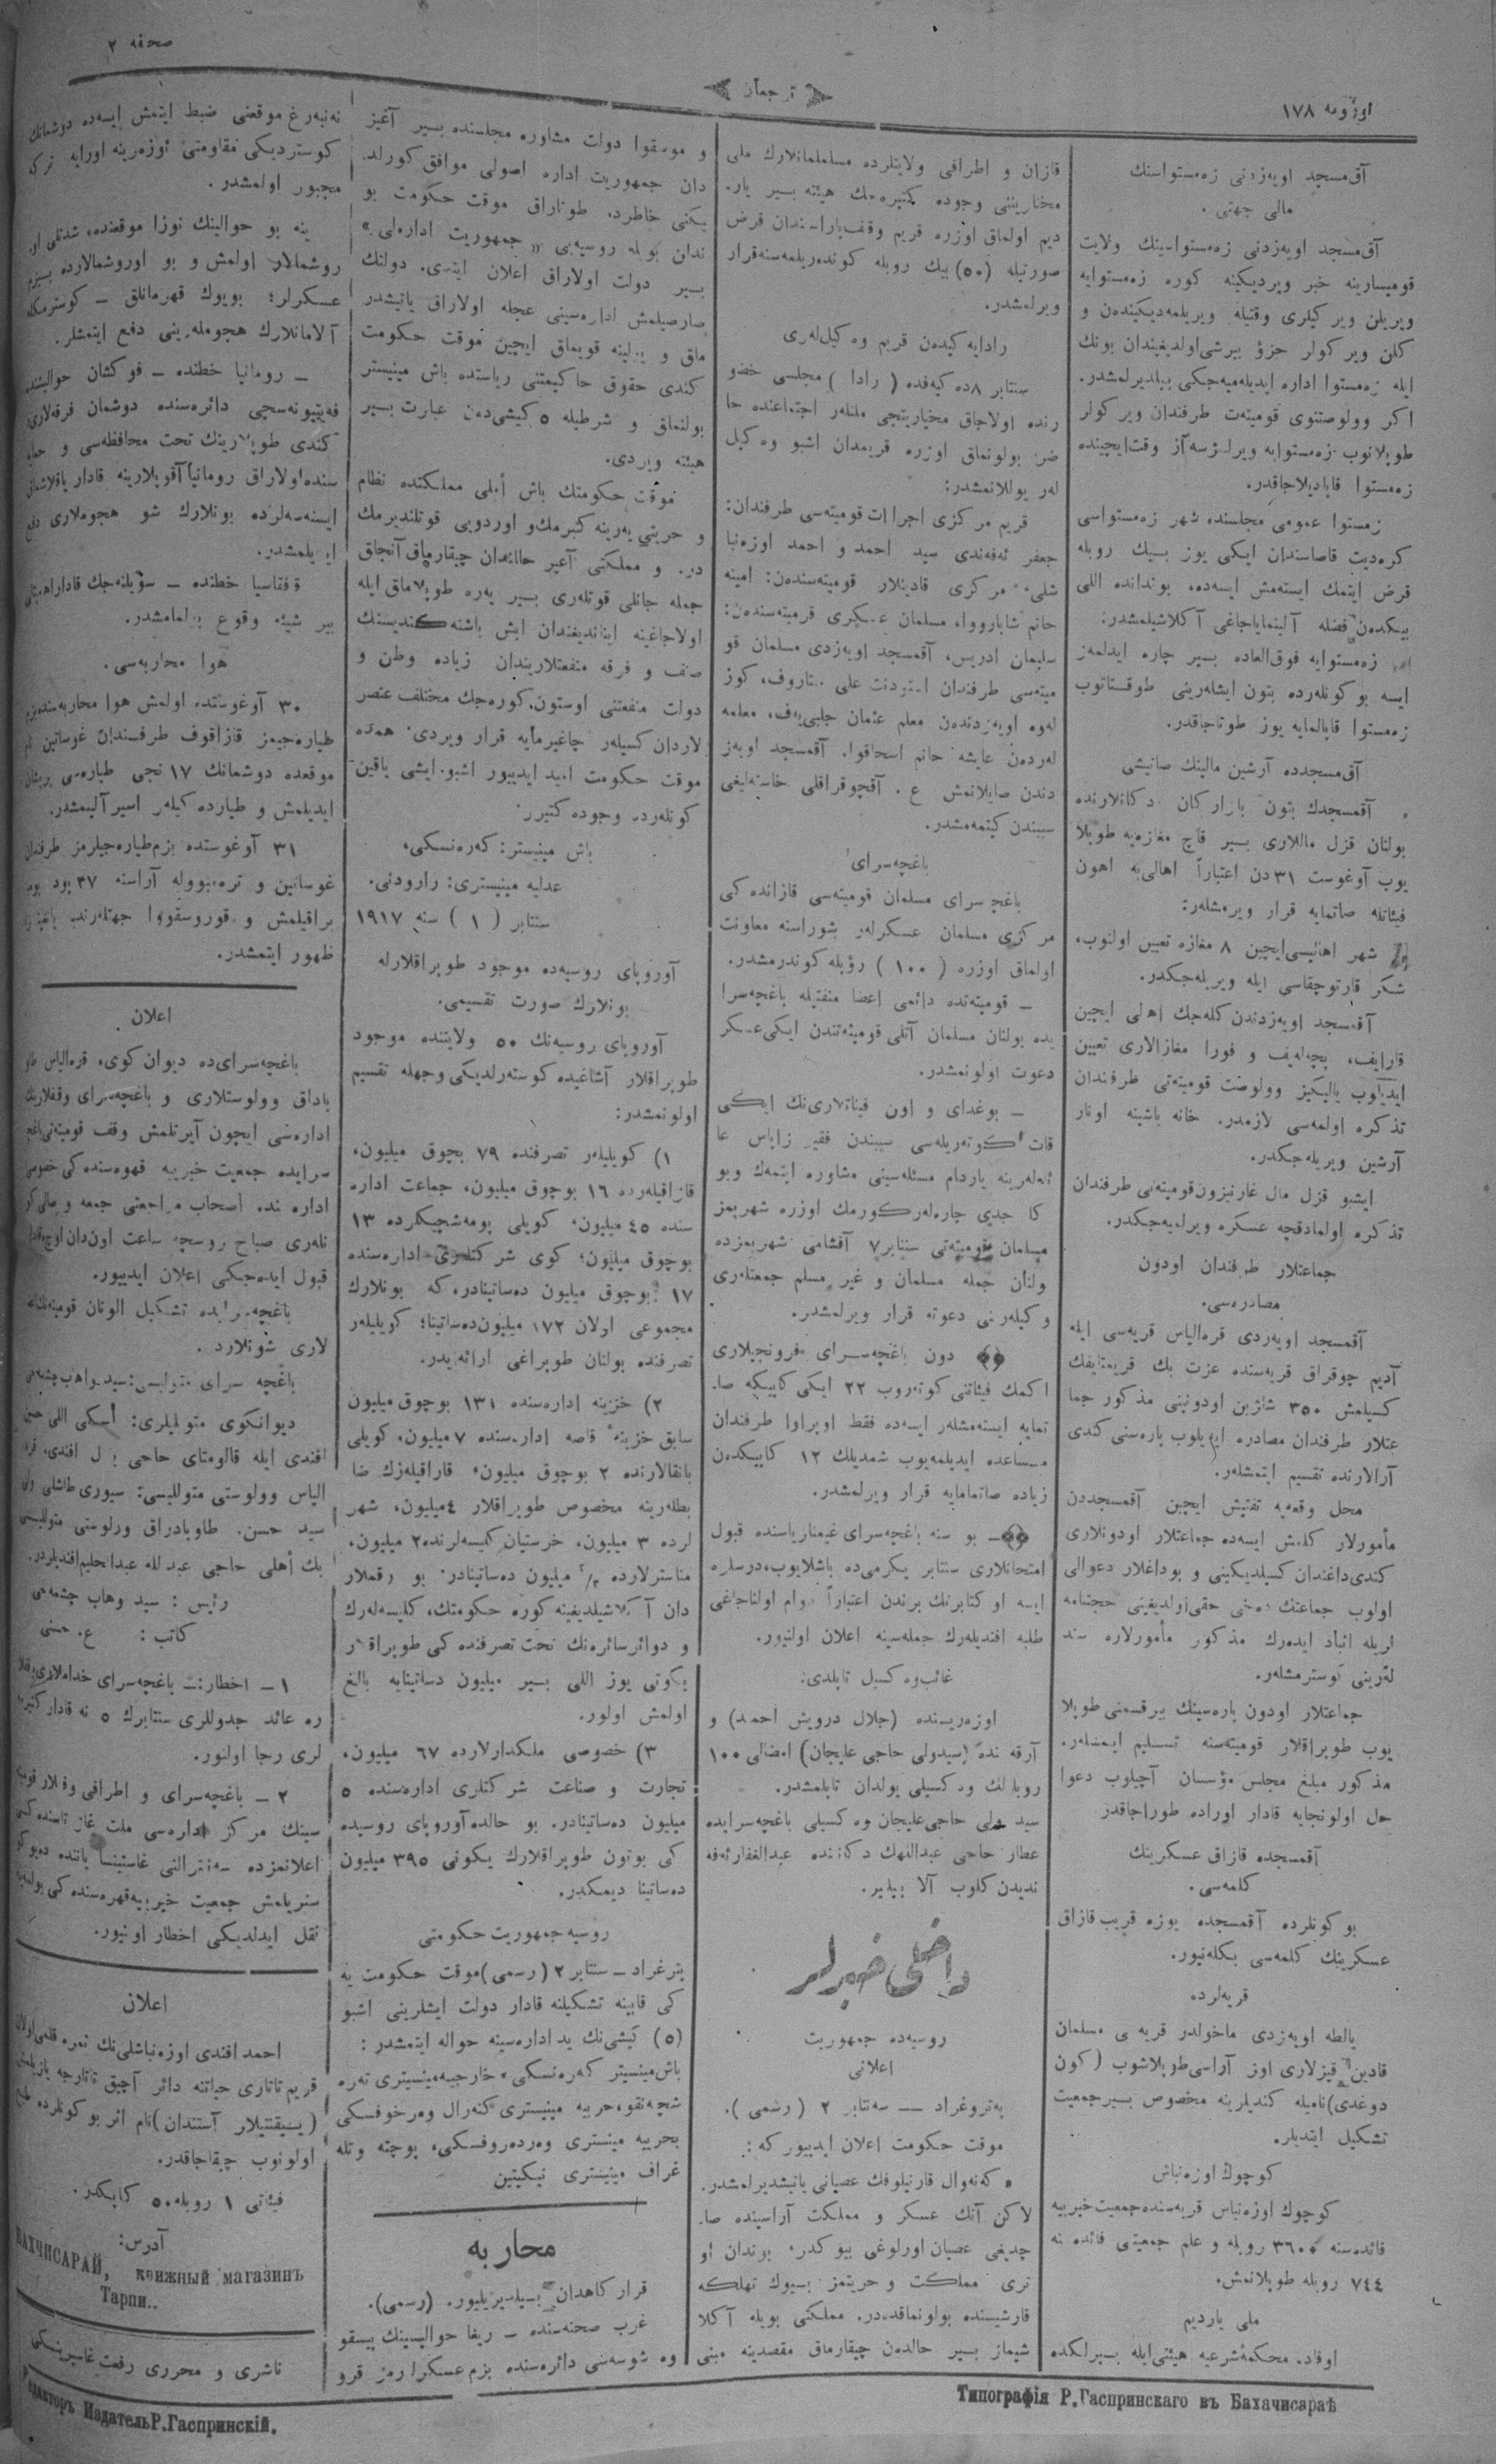 صحفه ٢
ترجمان
اوزومه ١٧٨
آق‌مسجد اويه‌زدنى زه‌مستواسنك
مالى جهتى.
آق‌مسجد اويه‌زدنى زه‌مستواسينك ولايت
قوميسارينه خبر ويرديكينه كوره زه‌مستوايه
ويريلن ويركيلرى وقتيله ويريلمه‌ديكيندن و
كلن ويركولر جزؤ بيرشى‌اولديغيندان بونك
ايله زه‌مستوا اداره ايديله‌ميه‌جكى بيلديرلمشدر.
اكر وولوصتنوى قوميته‌ت طرفندان ويركولر
طوپلانوب زه‌مستوايه ويرلمزسه‌آز وقت‌ايچينده
زه‌مستوا قاپاديلاجاقدر.
زمستوا عمومى مجلسنده شهر زه‌مستواسى
كره‌ديت قاصاسندان ايكى يوز بيك روبله
قرض ايتمك ايسته‌مش ايسه‌ده، بوندانده اللى
بيكدن فضله آلينماياجاغى آكلاشيلمشدر:
زه‌مستوايه فوق‌العاده بير چاره ايدلمه‌ز
ايسه بو كونلرده بتون ايشلرينى طوقتاتوب
زه‌مستوا قاپالمايه يوز طوتاجاقدر.
آق‌مسجدده آرشين مالينك صاتيشى
آقمسجدك بتون بازاركان دكانلارنده
بولنان قزل ماللارى بير قاچ مغازه‌يه طوپلا
يوب آوغوست ٣١ دن اعتباراً اهالى‌يه اهون
فيئاتله صاتمايه قرار ويرمشلر:
شهر اهاليسى‌ايچين ٨ مغازه تعيين اولنوب،
شكر قارتوچقاسى ايله ويريله‌جكدر.
آقمسجد اويه‌زدندن كله‌جك اهلى ايچين
قارايف، بچه‌ليف و فورا مغازالارى تعيين
ايديلوب يالكيز وولوصت قوميته‌تى طرفندان
تذكره اولمه‌سى لازمدر. خانه باشينه اونار
آرشين ويريله‌جكدر.
ايشبو قزل مال غارنيزون‌قوميته‌تى طرفندان
تذكره اولمادقچه عسكره ويرلميه‌جكدر.
جماعتلار طرفندان اودون
مصادره‌سى.
آقمسجد اويه‌زدى قره‌الياس قريه‌سى ايله
آديم چوقراق قريه‌سنده عزت بك قريمتايفك
كسيلمش ٣٥٠ شاژين اودونينى مذكور جما
عتلار طرفندان مصادره ايديلوب پاره‌سنى كندى
آرالارنده تقسيم ايتمشلر.
محل وقعه‌يه تفتيش ايچين آقمسجددن
مأمورلار كلمش ايسه‌ده جماعتلار اودونلارى
كندى‌داغندان كسيلديكينى و بوداغلار دعوالى
اولوب جماعتك دخى حقى‌اولديغينى حجتنامه
لريله اثبات ايده‌رك مذكور مأمورلاره سند
لرينى كوسترمشلر.
جماعتلار اودون پاره‌سينك بيرقسمنى طوپلا
يوب طوپراقلار قوميته‌سنه تسليم ايتمشلر.
مذكور مبلغ مجلس مؤسسان آچيلوب دعوا
حل اولونجايه قادار اوراده طوراجاقدر
آقمسجده قازاق عسكرينك
كلمه‌سى.
بو كونلرده آقمسجده يوزه قريب قازاق
عسكرينك كلمه‌سى بكله‌نيور.
قريه‌لرده
يالطه اويه‌زدى ماخولدر قريه‌سى مسلمان
قادين قيزلارى اوز آراسى‌طوپلاشوب (كون
دوغدى)ناميله كنديلرينه مخصوص بيرجمعيت
تشكيل ايتديلر.
كوچوك اوزه‌نباش
كوچوك اوزه‌نباش قريه‌سنده‌جمعيت‌خيريه
فائده‌سنه ٣٦٠٠ روبله و علم جمعيتى فائده‌سنه
٧٤٤ روبله طوپلانمش.
ملى يارديم
اوفاد. محكمهٔ‌شرعيه هيئتى‌ايله بيرلكده
قازان و اطرافى ولايتلرده مسلمانلارك ملى
مختاريتنى وجوده كتيره‌جك هيئته بير يار.
ديم اولماق اوزره قريم وقف‌پاراسندان قرض
صورتيله (٥٠) بيك روبله كوندريلمه‌سنه‌قرار
ويرلمشدر.
رادايه كيدن قريم وه‌كيل‌لرى
سنتابر ٨ده كيه‌فده (رادا) مجلسى حضو
رنده اولاجاق مختاريتجى ملتلر اجتماعنده حا
ضر بولونماق اوزره قريمدان اشبو وه‌كيل
لر يوللانمشدر:
قريم مركزى اجراآت قوميته‌سى طرفندان:
جعفر ئه‌فه‌ندى سيد احمد و احمد اوزه‌نبا
شلى. مركزى قادينلار قوميته‌سندن: امينه
خانم شاباروواه مسلمان عسكرى قوميته‌سندن:
سليمان ادريس، آقمسجد اويه‌زدى مسلمان قو
ميته‌سى طرفندان على ستاروف، كوز
لوه اويه‌زدندن معلم عثمان چلبى‌يف، معلمه
لردن عايشه خانم اسحاقوا. آقمسجد اويه‌ز
دندن صايلانمش ع. آقچوقراقلى خاسته‌ليغى
سببندن كيتمه‌مشدر.
باغچه‌سراى
باغچه‌سراى مسلمان قوميته‌سى قازانده‌كى
مركزى مسلمان عسكرلر شوراسنه معاونت
اولماق اوزره (١٠٠) رؤبله كوندرمشدر.
— قوميته‌ته دائمى اعضا منفتيله باغچه‌سرا
يده بولنان مسلمان آتلى قوميته‌تندن ايكى‌عسكر
دعوت اولونمشدر.
— بوغداى و اون فيئاتلارى‌نك ايكى
قات كوته‌ريله‌سى سببندن فقير زاپاس عا
ئله‌لرينه ياردام مسئله‌سينى مشاوره ايتمه‌ك وبو
كا جدى چاره‌لركورمك اوزره شهريمز
مسلمان قوميته‌تى سنتابر٧ آقشامى شهريمزده
ولنان جمله مسلمان و غير مسلم جمعتلرى
وكيله‌رنى دعوته قرار ويرلمشدر.
دون باغچه‌سراى فرونجيلارى
اكمك فيئاتنى كوتروب ٢٢ ايكى كاپيكه صا.
تمايه ايسته‌مشلر ايسه‌ده فقط اوپراوا طرفندان
مساعده ايديلمه‌يوب شمديلك ١٢ كاپيكدن
زياده صاتمامايه قرار ويرلمشدر.
— بو سنه باغچه‌سراى غيمنازياسنده قبول
امتحانلارى سنتابر يكرمى‌ده باشلايوب،درسلره
ايسه اوكتابرنك برندن اعتباراً دوام اولناجاغى
طلبه افنديلرك جمله‌سينه اعلان اولنيور.
غائب وه‌كسيل تاپلدى:
اوزه‌ريسنده (جلال درويش احمد) و
آرقه‌سنده (سيدولى حاجى عليجان) امضالى ١٠٠
روبله‌لك وه‌كسيلى يولدان تاپلمشدر.
سيد ولى حاجى‌عليجان وه‌كسيلى باغچه‌سرايده
عطار حاجى عبدالفهك دكاننده عبدالغفارئه‌فه
نديدن كلوب آلا بيلير.
داخلى خبرلر
روسيه‌ده جمهوريت
اعلانى
په‌تروغراد — سه‌نتابر ٢ (رسمى).
موقت حكومت اعلان ايدييور كه:
كه‌نه‌رال قارنيلوفك عصيانى ياتيشديرلمشدر.
لاكن آنك عسكر و مملكت آراسينده صا.
چديغى عصيان اورلوغى بيوكدر. بوندان او
ترى مملكت و حريتمز بيوك تهلكه
قارشيسنده بولونماقدـدر. مملكتى بويله آكلا
شيماز بير حالدن چيقارماق مقصدينه مبنى
و موسقوا دولت مشاوره مجلسنده بير آغيز
دان جمهوريت اداره اصولى موافق كورلد.
يكنى خاطرده طوتاراق موقت حكومت بو
ندان بويله روسيه‌يى «جمهوريت اداره‌لى»
بير دولت اولاراق اعلان ايتدى. دولتك
صارصيلمش اداره‌سينى عجله اولاراق ياتيشدر
ماق و يرلينه قويماق ايچين موقت حكومت
كندى حقوق حاكيمتنى رياستده باش مينيستر
بولنماق و شرطيله ٥ كيشى‌دن عبارت بير
هيئته ويردى.
موقت حكومتك باش أملى مملكتده نظام
و حريتى يه‌رينه كتيرمك‌و اوردويى قوتلنديرمك
در. و مملكتى آغير حالندان چيقارماق آنجاق
جمله جانلى قوتلرى بير يره طوپلاماق ايله
اولاجاغينه اينانديغندان ايش باشنه كنديسنك
صنف و فرقه منفعتلاريندان زياده وطن و
دولت منفعتنى اوستون كوره‌جك مختلف عنصر
لاردان كسيلر چاغيرمايه قرار ويردى. همده
موقت حكومت اميد ايدييور اشبو ايشى ياقين
كونلرده وجوده كتيرر.
باش مينيستر: كه‌ره‌نسكى،
عدليه مينيسترى: زارودنى.
سنتابر (١) سنه ١٩١٧
آوروپاى روسيه‌ده موجود طوپراقلارله
بونلارك صورت تقسيمى.
آوروپاى روسيه‌نك ٥٠ ولايتنده موجود
طوپراقلار آشاغيده كوسته‌رلديكى وجهله تقسيم
اولونمشدر:
١) كويليلر تصرفنده ٧٩ بچوق ميليون،
قازاقيلرده ١٦ بوچوق ميليون، جماعت اداره
سنده ٤٥ ميليون، كويلى بومه‌شچيكلرده ١٣
بوچوق ميليون، كوى شركتلرى اداره‌سنده
١٧ بوچوق ميليون ده‌ساتينادر، كه بونلارك
مجموعى اولان ١٧٢ ميليون‌ده‌ساتينا؛ كويليلر
تصرفنده بولنان طوپراغى ارائه‌يدر.
٢) خزينه اداره‌سنده ١٣١ بوچوق ميليون
سابق خزينهٔ خاصه اداره‌سنده ٧ ميليون، كويلى
بانقالارنده ٢ بوچوق ميليون، قازاقيلرك ضا
بطلرينه مخصوص طوپراقلار ٤ميليون، شهر
لرده ٣ ميليون، خرستيان كليسه‌لرنده٢ ميليون،
مناسترلارده ½ ميليون ده‌ساتينادر. بو رقملار
دان آكلاشيلديغينه كوره حكومتك، كليسه‌لرك
و دوائرسائره‌نك تحت تصرفنده كى طوپراقلار
يكونى يوز اللى بير ميليون دساتينايه بالغ
اولمش اولور.
٣) خصوصى ملكدارلارده ٦٧ ميليون.
تجارت و صناعت شركتلرى اداره‌سنده ٥
ميليون ده‌ساتينادر. بو حالده‌آوروپاى روسيه‌ده
كى بوتون طوپراقلارك يكونى ٣٩٥ ميليون
ده‌ساتينا ديمكدر.
روسيه جمهوريت حكومتى
پترغراد — سنتابر ٢ (رسمى)موقت حكومت يه
كى قابينه تشكيلنه قادار دولت ايشلرينى اشبو
(٥) كيشى‌نك يد اداره‌سينه حواله ايتمشدر:
باش‌مينيستر كه‌ره‌نسكى، خارجيه‌مينيسترى ته‌ره
شچه‌نقو، حربيه مينيسترى كنه‌رال وه‌رخوفسكى
بحريه مينيسترى وه‌رده‌روفسكى، پوچته وتله
غراف مينيسترى نيكيتين
محاربه
قرار كاهدان بيلديريليور. (رسمى).
غرب صحنه‌سنده — ريغا حواليسينك پسقو
وه شوسه‌سى دائره‌سنده بزم عسكرلرمز قرو
نه‌نبه‌رغ موقعنى ضبط ايتمش ايسه‌ده دوشمانك
كوسترديكى مقاومتى اوزه‌رينه اورايه ترك
مجبور اولمشدر.
ينه بو حوالينك نوزا موقعنده، شدتلى او.
روشمالار اولمش و بو اوروشمالارده بيزم
عسكرلر؛ بويوك قهرمانلق — كوسترمكله
آلامانلارك هجوملرينى دفع ايتمشلر.
— رومانيا خطنده — فوكشان حواليسنده
دائره‌سنده دوشمان فرقه‌لارى
كندى طوپلارينك تحت محافظه‌سى و حمايه
سنده‌اولاراق رومانيا آقوپلارينه قادار ياقلاشماق
ايسته‌سه‌لرده بونلارك شو هجوملارى دفع
ايديلمشدر.
قفقاسيا خطنده — سؤيلنه‌جك قاداراهميتلى
بير شيئه وقوع بولمامشدر.
هوا محاربه‌سى.
٣٠ آوغوستده، اولمش هوا محاربه‌سنده‌بزم
طياره‌جيمز قازاقوف طرفندان غوساتين نام
موقعده دوشمانك ١٧ نجى طياره‌سى پريشان
ايديلمش و طيارده كيلر اسير آلينمشدر.
٣١ آوغوستده بزم‌طياره‌جيلرمز طرفندان
غوساتين و تره‌مبووله آراسنه ٣٧ پود بومبه
براقيلمش و قوروسقووا جهتلرنده يانغينلر
ظهور ايتمشدر.
اعلان
باغچه‌سراى‌ده ديوان كوى، قره‌الياس طاو
باداق وولوستلارى و باغچه‌سراى وقفلارينك
اداره‌سى ايچون آيرتلمش وقف قوميته‌تى‌باغچه
سرايده جمعيت خيريه قهوه‌سنده‌كى خصوصى
اداره‌سنده. اصحاب مراجعتى جمعه و صالى‌كو
نلرى صباح روسچه ساعت اون‌دان اوچه‌قدار
قبول ايده‌جكى اعلان ايدييور.
باغچه‌سرايده تشكيل الونان قوميته‌نك‌اعضا
لارى شونلاردر.
باغچه سراى متوليسى: سيد واهب چشمه‌جى
ديوانكوى متوليلرى: أسكى اللى حسن
افندى ايله قالومتاى حاجى بلال افندى، قره
الياس وولوستى متوليسى: سيورى‌طاشلى ولى
سيد حسن. طاوبادراق وولوستى متوليسى
بك أهلى حاجى عبدلله عبدالحليم‌افنديلردر.
رئيس: سيد وهاب چشمه‌جى
كاتب: ع. حسنى
١ — اخطار: — باغچه‌سراى خدامه‌لارى‌وقفلا
ره عائد جدوللرى سنتابرك ٥ نه قادار كتيرمه
لرى رجا اولنور.
٢ — باغچه‌سراى و اطرافى وقفلار قوميته
سينك مركز اداره‌سى ملت غازتاسنده‌كى
اعلانمزده سه‌نترالنى غاستينسا ياننده ديوكو
ستريلمش جمعيت خيريه‌قهوه‌سنده‌كى بولمه‌يه
نقل ايدلديكى اخطار اولنيور.
اعلان
احمد افندى اوزه‌نباشلى‌نك ثمره قلمى‌اولان
قريم تاتارى حياتنه دائر آچيق تاتارجه يازيلمش
(ييقنتيلار آستندان)نام اثر بو كونلرده طبع
اولونوب چيقاجاقدر.
فيئاتى ١ روبله ٥٠ كاپكدر.
آدرس:
БАХЧИСАРАЙ, книжный магазинъ
Тарпи..
ناشرى و محررى رفعت غاسپرينسكى
Редакторъ Издатель Р.Гаспринскій.
Типографія Р.Гаспринскаго въ Бахчисараѣ